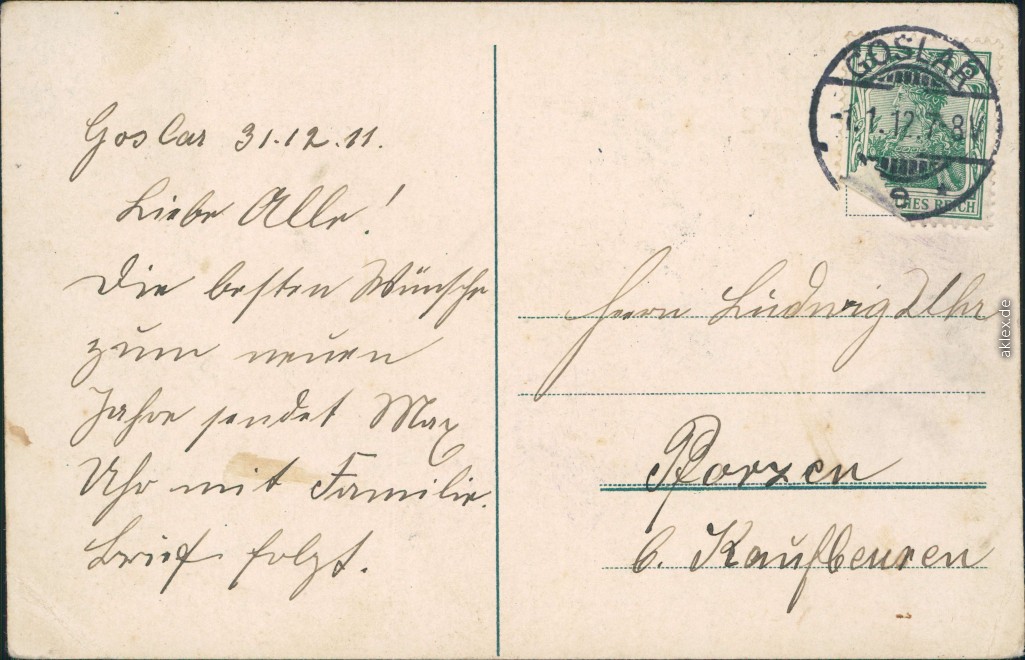 Goslar 31.12.11.
Liebe Alle!
Die besten Wünsche
zum neuen
Jahre sendet Max
Uhr mit Familie.
Brief folgt.
GOSLAR
-1.1.12.7-8V.
* e *
DEUTSCHES REICH
Herrn Ludwig Uhr
Pforzen
b. Kaufbeuren
aklex.de